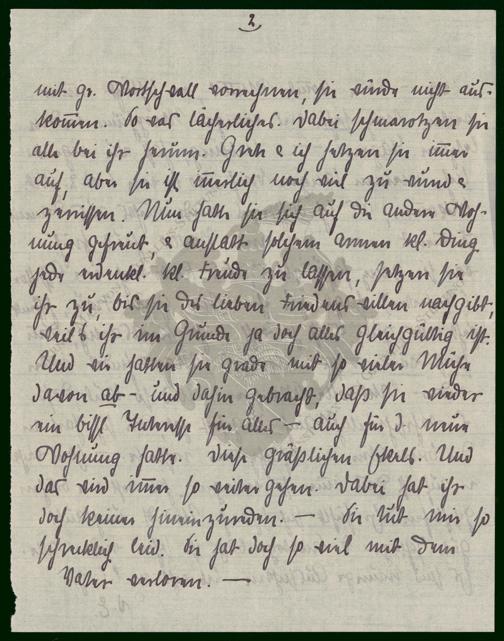 2
mit gr. Wortschwall vorrechnen, sie würde nicht aus-
kom̅en. So was lächerliches. Dabei schmarotzen sie
alle bei ihr herum. Greth & ich hetzen sie im̅er
auf, aber sie ist innerlich noch viel zu wund &
zerrissen. Nun hatte sie sich auf die andere Woh-
nung gefreut, & anstatt solchem armen kl. Ding
jede erdenkl. kl. Freude zu lassen, setzen sie
ihr zu bis sie des lieben Friedens willen nachgibt,
weil's ihr im Grunde ja doch alles gleichgültig ist.
Und wir hatten sie grade mit so vieler Mühe
davon ab- und dahin gebracht, daß sie wieder
ein bissl Interesse für alles – auch für d. neue
Wohnung hatte. Diese gräßlichen Ekels. Und
das wird im̅er so weiter gehen. Dabei hat ihr
doch keiner hineinzureden. — Sie tut mir so
schrecklich leid. Sie hat doch so viel mit dem
Vater verloren. —